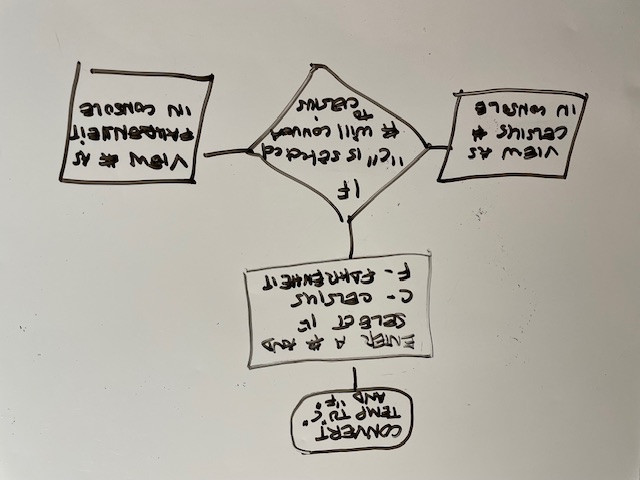 CONVERT
TEMP TO "C"
AND "F"
ENTER A # AND
SELECT IF
C - CELSIUS
F - FAHRENHEIT
IF
"C" IS selected
# WILL CONVERT
TO CELSIUS
VIEW AS
CELSIUS #
IN CONSOLE
VIEW # AS
FAHRENHEIT
IN CONSOLE